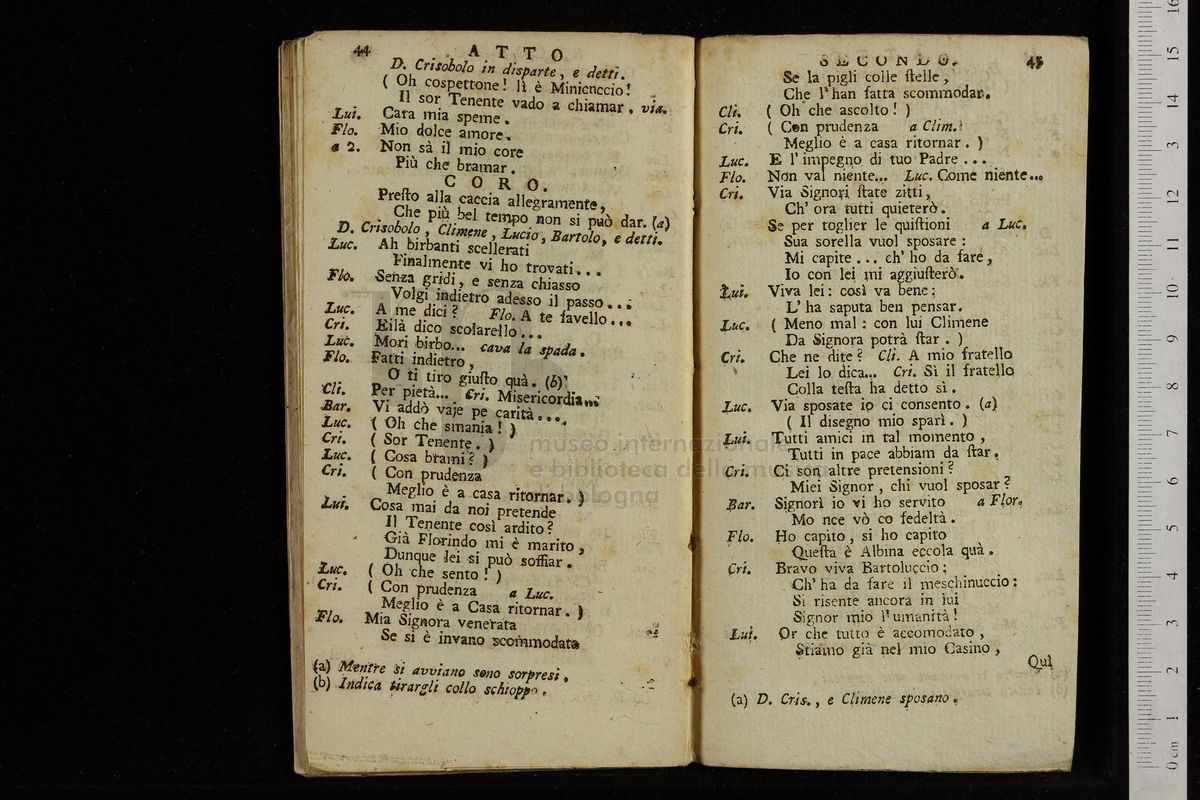 44 ATTO
D. Crisobolo in disparte, e detti.
( Oh cospettone! lì è Minicnccio!
Il sor Tenente vado a chiamar. via.
Lui. Cara mia speme.
Flo. Mio dolce amore.
a 2. Non sà il mio core
Più che bramar.
CORO.
Preſto alla caccia allegramente,
Che più bel tempo non si può dar. (a)
D. Crisobolo, Climene, Lucio, Bartolo, e detti.
Luc. Ah birbanti scellerati
Finalmente vi ho trovati...
Flo. Senza gridi, e senza chiasso
Volgi indietro adesso il passo...
Luc. A me dici? Flo. A te favello...
Cri. Eilà dico scolarello...
Luc. Mori birbo... cava la spada.
Flo. Fatti indietro,
O ti tiro giuſto quà. (b)
Cli. Per pietà... Cri. Misericordia...
Bar. Vi addò vaje pe carità...
Luc. ( Oh che smania! )
Cri. ( Sor Tenente. )
Luc. ( Cosa brami? )
Cri. ( Con prudenza
Meglio è a casa ritornar. )
Lui. Cosa mai da noi pretende
Il Tenente così ardito?
Già Florindo mi è marito,
Dunque lei si può soffiar.
Luc. ( Oh che sento! )
Cri. ( Con prudenza a Luc.
Meglio è a Casa ritornar. )
Flo. Mia Signora venerata
Se si è invano scommodata
(a) Mentre si avviano sono sorpresi.
(b) Indica tirargli collo schioppo.
SECONDO. 45
Se la pigli colle ſtelle,
Che l'han fatta scommodar.
Cli. ( Oh che ascolto! )
Cri. ( Con prudenza a Clim.
Meglio è a casa ritornar. )
Luc. E l'impegno di tuo Padre...
Flo. Non val niente... Luc. Come niente...
Cri. Via Signori ſtate zitti,
Ch'ora tutti quieterò.
Se per toglier le quiſtioni a Luc.
Sua sorella vuol sposare:
Mi capite... ch'ho da fare,
Io con lei mi aggiuſterò.
Lui. Viva lei: così va bene:
L'ha saputa ben pensar.
Luc. ( Meno mal: con lui Climene
Da Signora potrà ſtar. )
Cri. Che ne dite? Cli. A mio fratello
Lei lo dica... Cri. Sì il fratello
Colla teſta ha detto sì.
Luc. Via sposate io ci consento. (a)
( Il disegno mio sparì. )
Lui. Tutti amici in tal momento,
Tutti in pace abbiam da ſtar.
Cri. Ci son altre pretensioni?
Miei Signor, chi vuol sposar?
Bar. Signorì io vi ho servito a Flor.
Mo nce vò co fedeltà.
Flo. Ho capito, si ho capito
Queſta è Albina eccola quà.
Cri. Bravo viva Bartoluccio:
Ch'ha da fare il meschinuccio:
Si risente ancora in lui
Signor mio l'umanità!
Lui. Or che tutto è accomodato,
Stiamo già nel mio Casino,
Quì
(a) D. Cris., e Climene sposano.
museo internazionale
e biblioteca della musica
di bologna